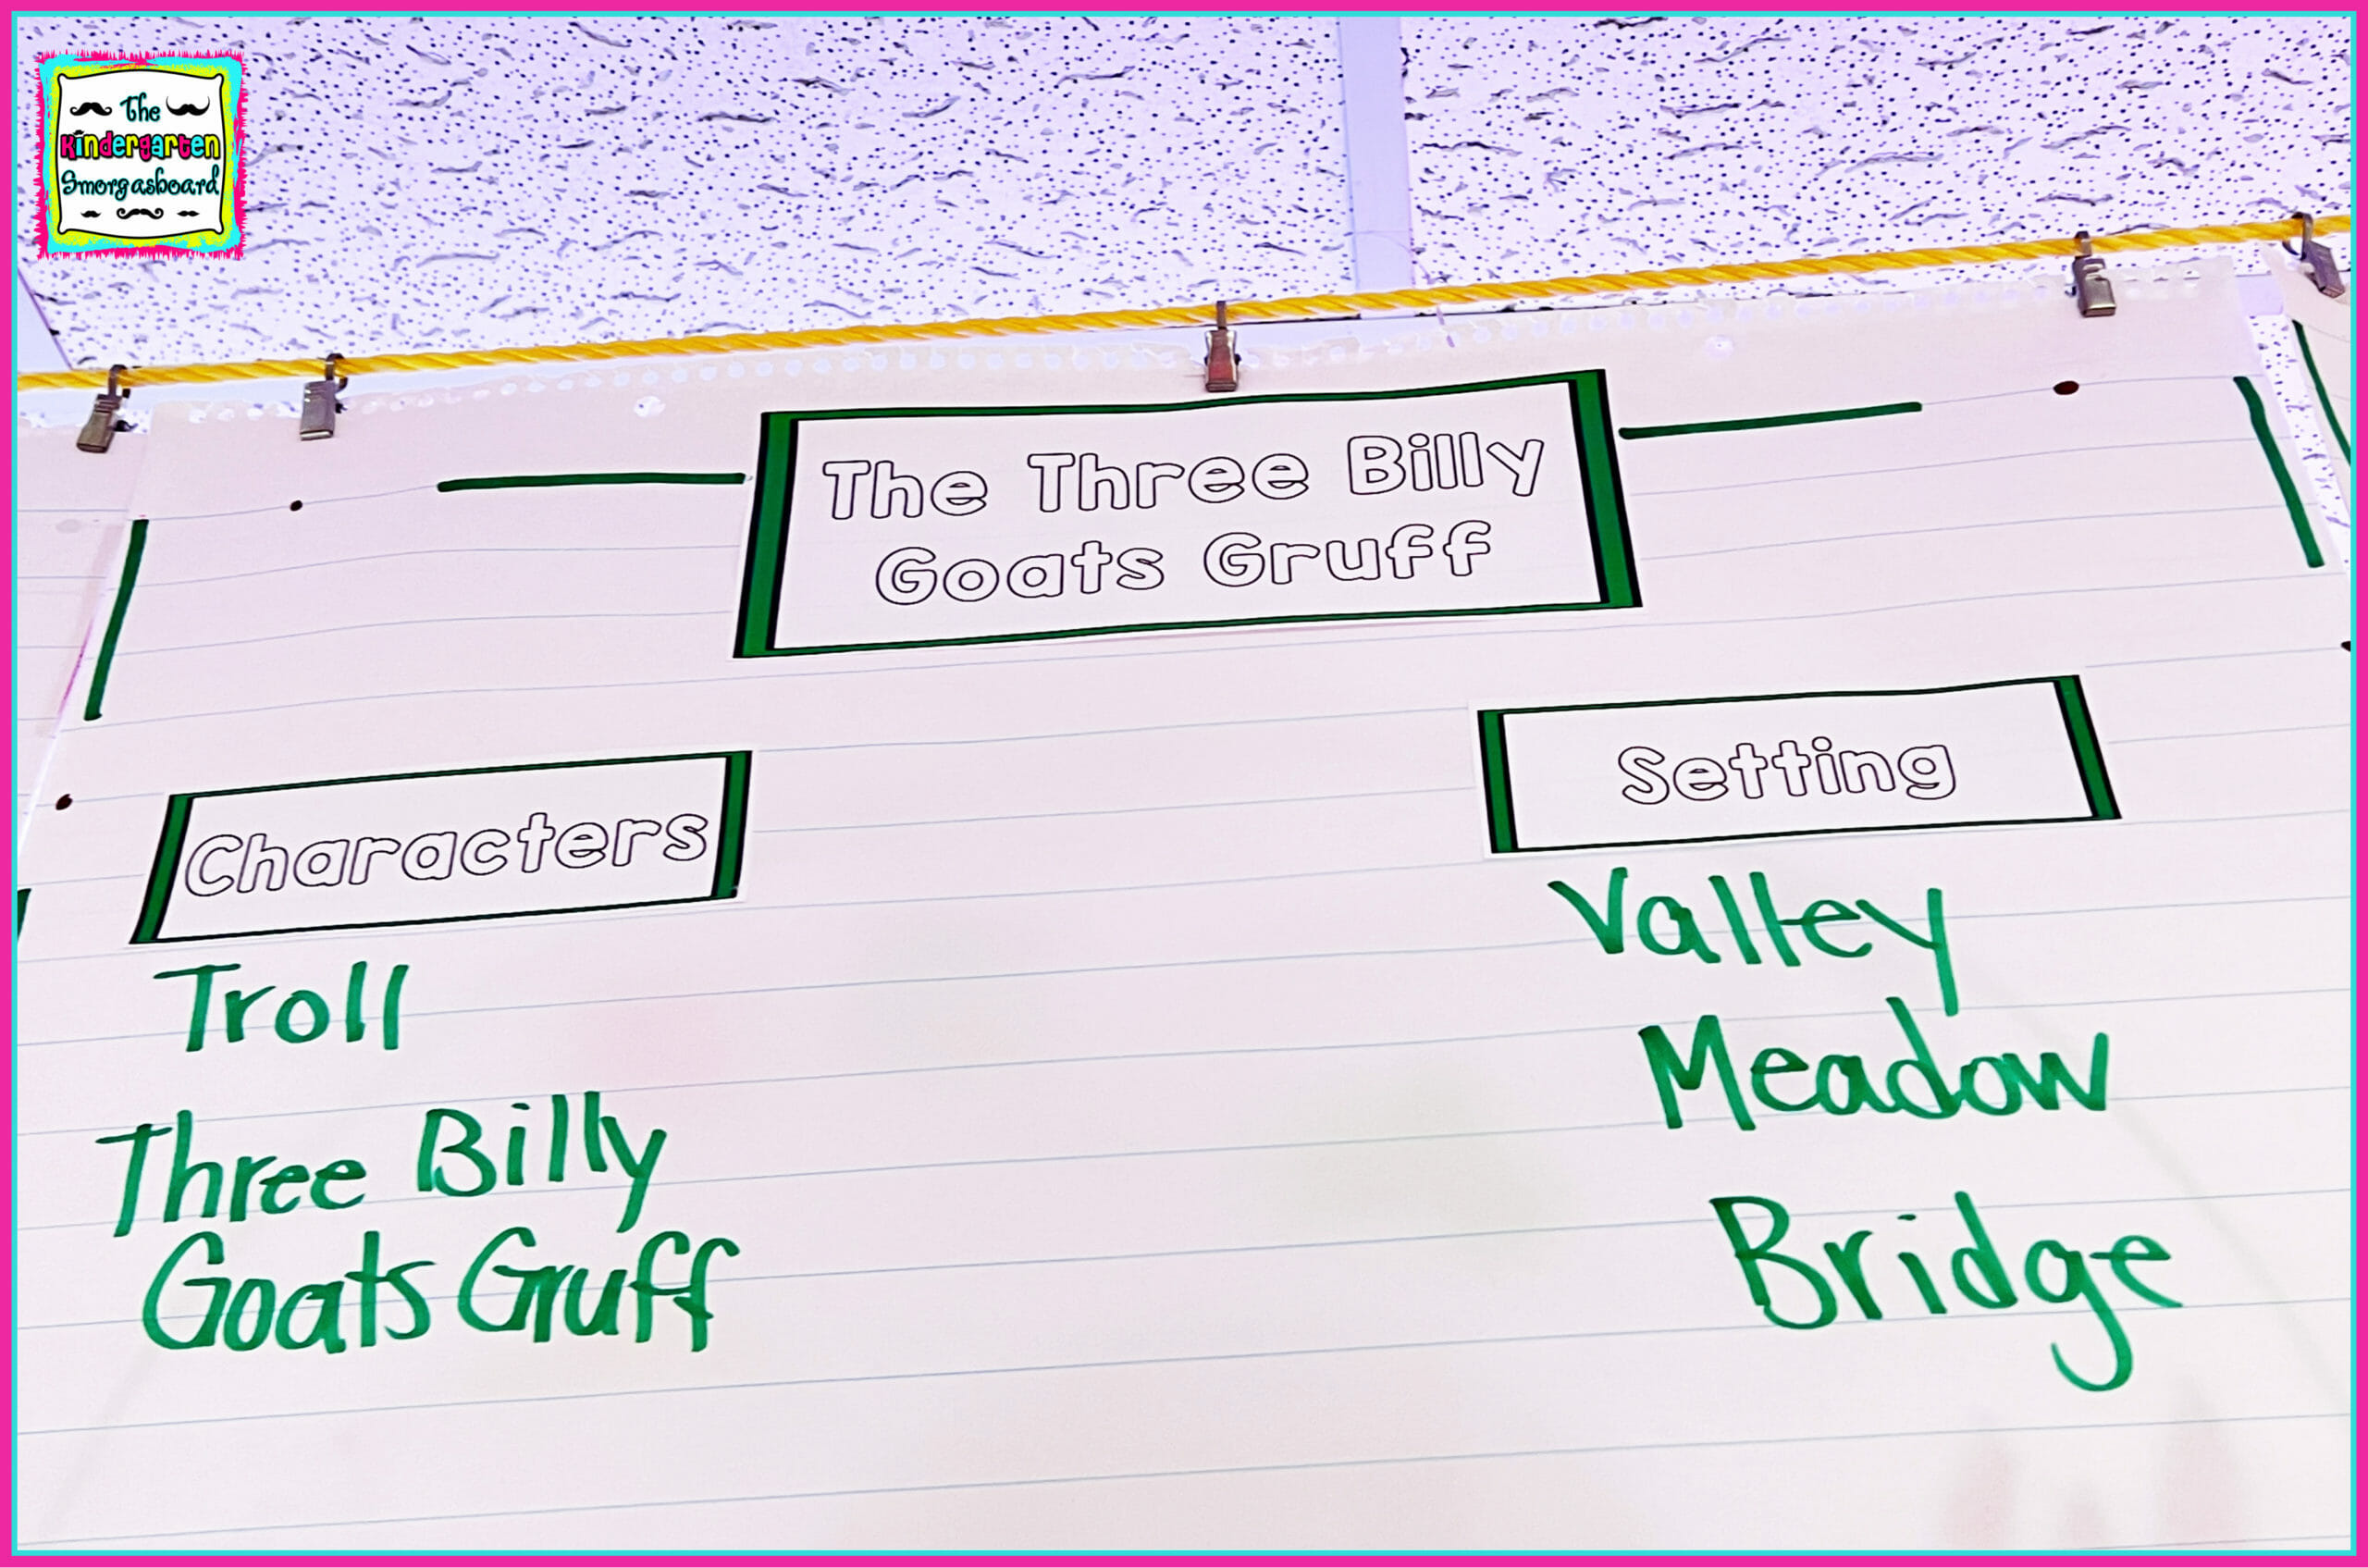 The
Kindergarten
Smorgasboard
The Three Billy
Goats Gruff
Characters
Troll
Three Billy
Goats Gruff
Setting
Valley
Meadow
Bridge